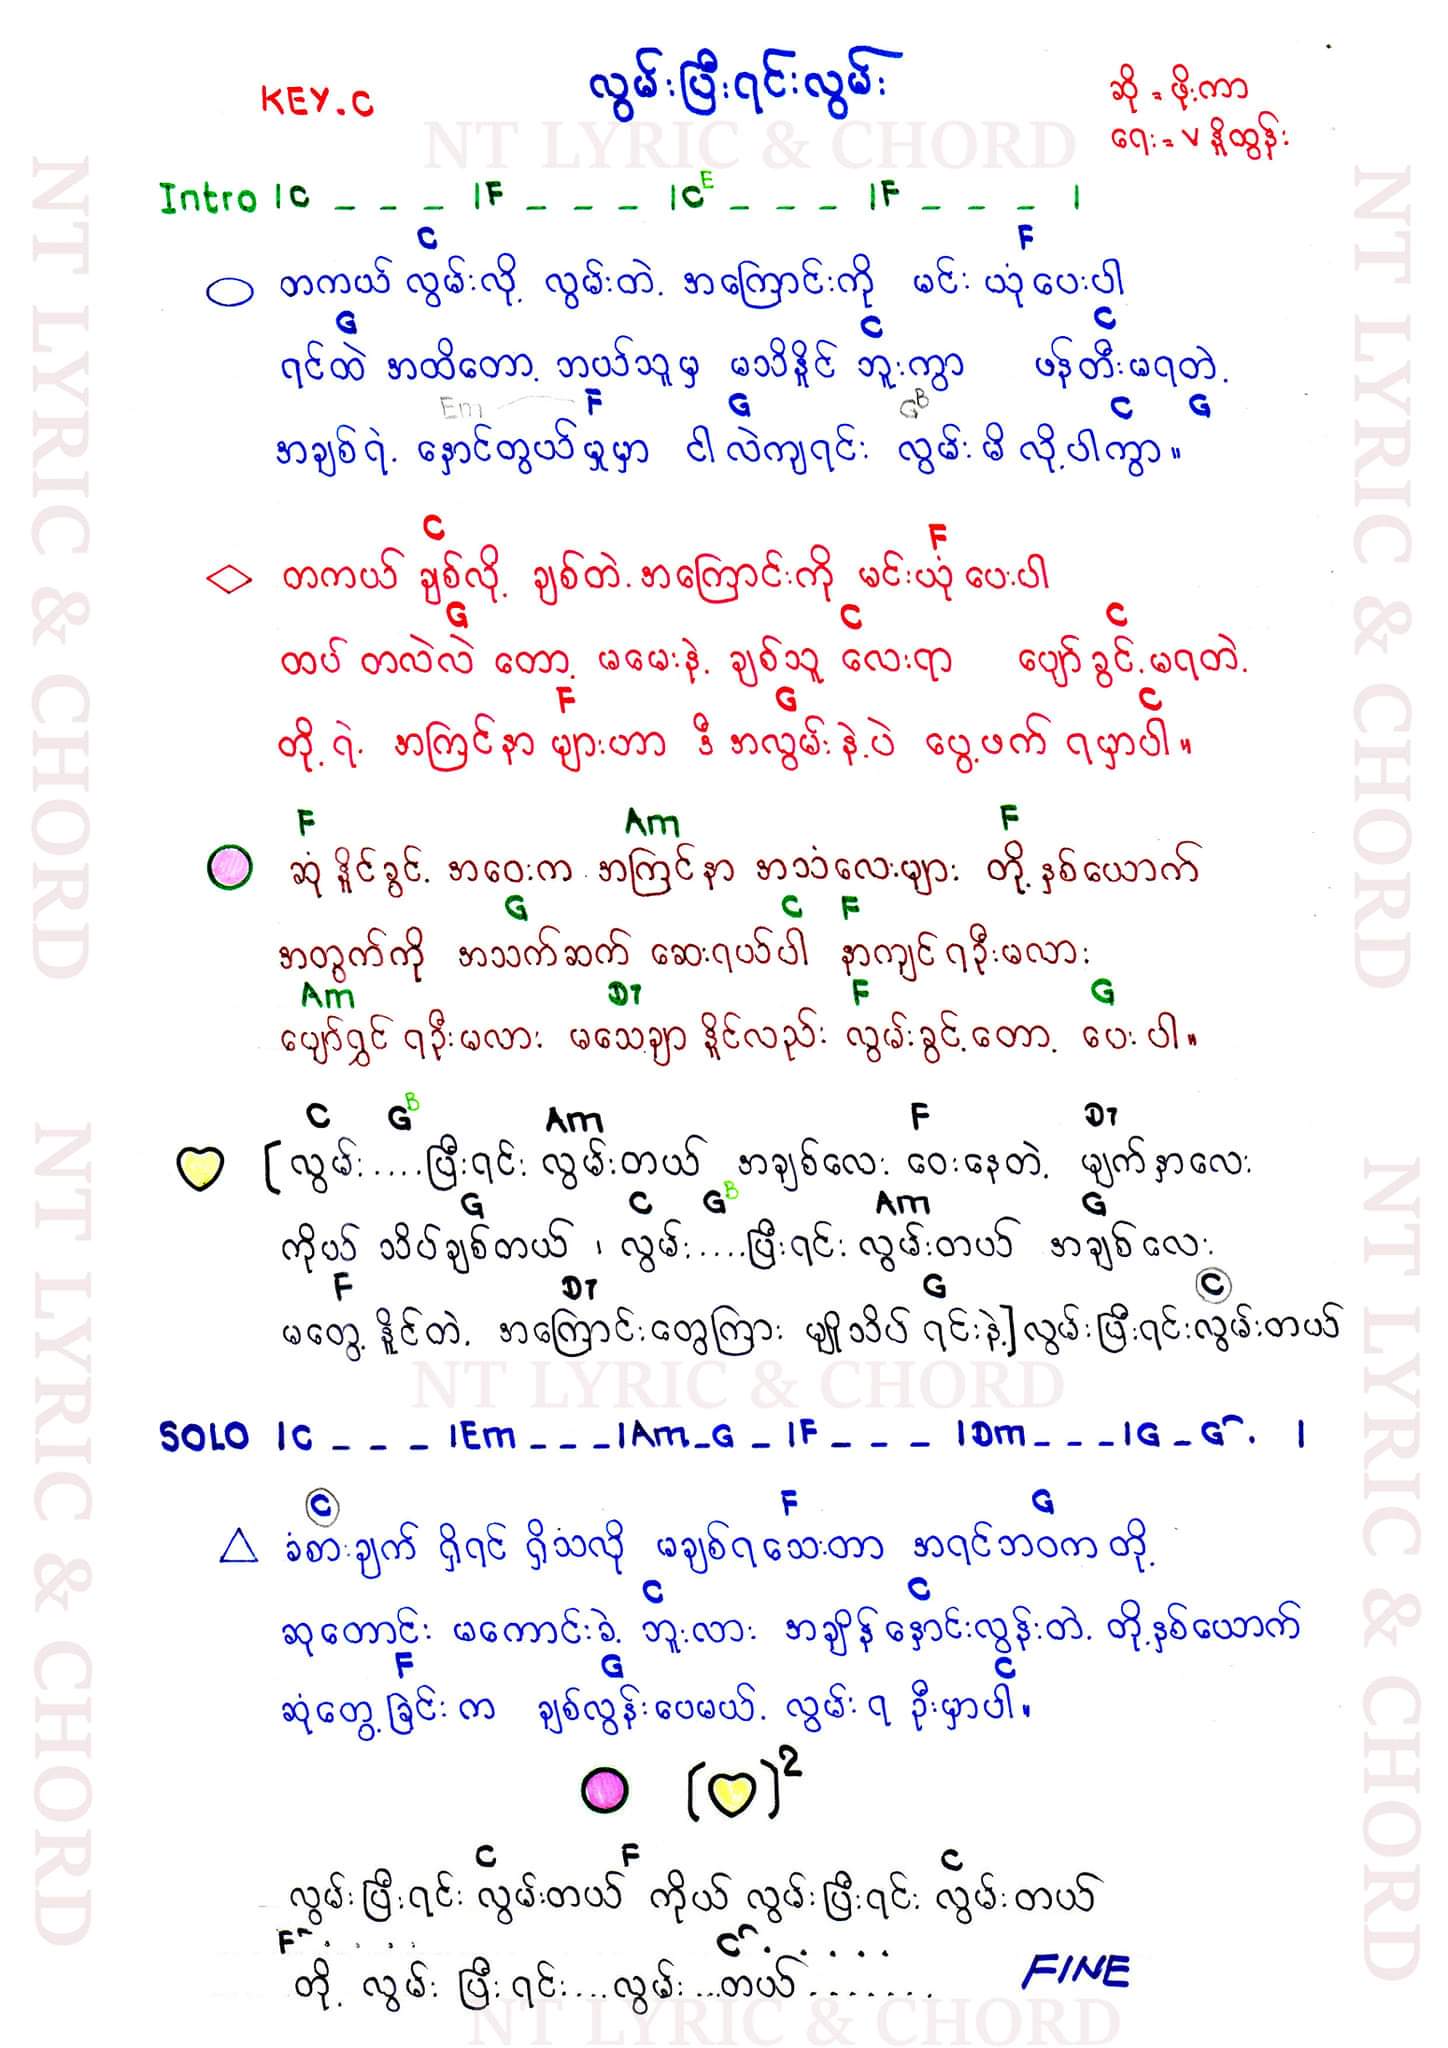 KEY.C
လွမ်းပြီးရင်းလွမ်း
ဆို = ဖိုးကာ
ရေး = V နိူထွန်း
NT LYRIC & CHORD
Intro |C _ _ _ |F _ _ _ |C E _ _ _ |F _ _ _ |
C F
တကယ် လွမ်းလို့ လွမ်းတဲ့ အကြောင်းကို မင်း ယုံပေးပါ
G C C
ရင်ထဲ အထိတော့ ဘယ်သူမှ မသိနိူင် ဘူးကွာ ဖန်တီးမရတဲ့
Em F G G B C G
အချစ်ရဲ့ နှောင်တွယ်မှုမှာ ငါ လဲကျရင်း လွမ်းမိ လို့ပါကွာ။
C F
တကယ် ချစ်လို့ ချစ်တဲ့ အကြောင်းကို မင်းယုံပေးပါ
G C C
ထပ် တလဲလဲ တော့ မမေးနဲ့ ချစ်သူ လေးရာ ပျော်ခွင့်မရတဲ့
F G C
တို့ရဲ့ အကြင်နာ များဟာ ဒီ အလွမ်းနဲ့ပဲ ပွေ့ဖက် ရမှာပါ။
F Am F
ဆုံနိူင်ခွင့် အဝေးက အကြင်နာ အသံလေးများ တို့နှစ်ယောက်
G C F
အတွက်ကို အသက်ဆက် ဆေးရယ်ပါ နာကျင်ရဦးမလား
Am D7 F G
ပျော်ရွှင်ရဦးမလား မသေချာနိူင်လည်း လွမ်းခွင့်တော့ ပေးပါ။
C G B Am F D7
[လွမ်း....ပြီးရင်း လွမ်းတယ် အချစ်လေး ဝေးနေတဲ့ မျက်နှာလေး
G C G B Am G
ကိုယ် သိပ်ချစ်တယ် ၊ လွမ်း....ပြီးရင်း လွမ်းတယ် အချစ်လေး
F D7 G C
မတွေ့နိူင်တဲ့ အကြောင်းတွေကြား မျှိုသိပ် ရင်းနဲ့] လွမ်းပြီးရင်းလွမ်းတယ်
NT LYRIC & CHORD
SOLO |C _ _ _ |Em _ _ _ |Am _ G _ |F _ _ _ |Dm _ _ _ |G _ G . |
C F G
ခံစားချက် ရှိရင် ရှိသလို မချစ်ရသေးတာ အရင်ဘဝက တို့
C C
ဆုတောင်း မကောင်းခဲ့ ဘူးလား အချိန်နှောင်းလွန်းတဲ့ တို့နှစ်ယောက်
F G C
ဆုံတွေ့ခြင်းက ချစ်လွန်းပေမယ့် လွမ်းရ ဦးမှာပါ။
( )2
C F C
လွမ်းပြီးရင်း လွမ်းတယ် ကိုယ် လွမ်းပြီးရင်း လွမ်းတယ်
F ..... C ......
တို့ လွမ်း ပြီးရင်း....လွမ်း...တယ်.......
FINE
NT LYRIC & CHORD
NT LYRIC & CHORD
NT LYRIC & CHORD
NT LYRIC & CHORD
NT LYRIC & CHORD